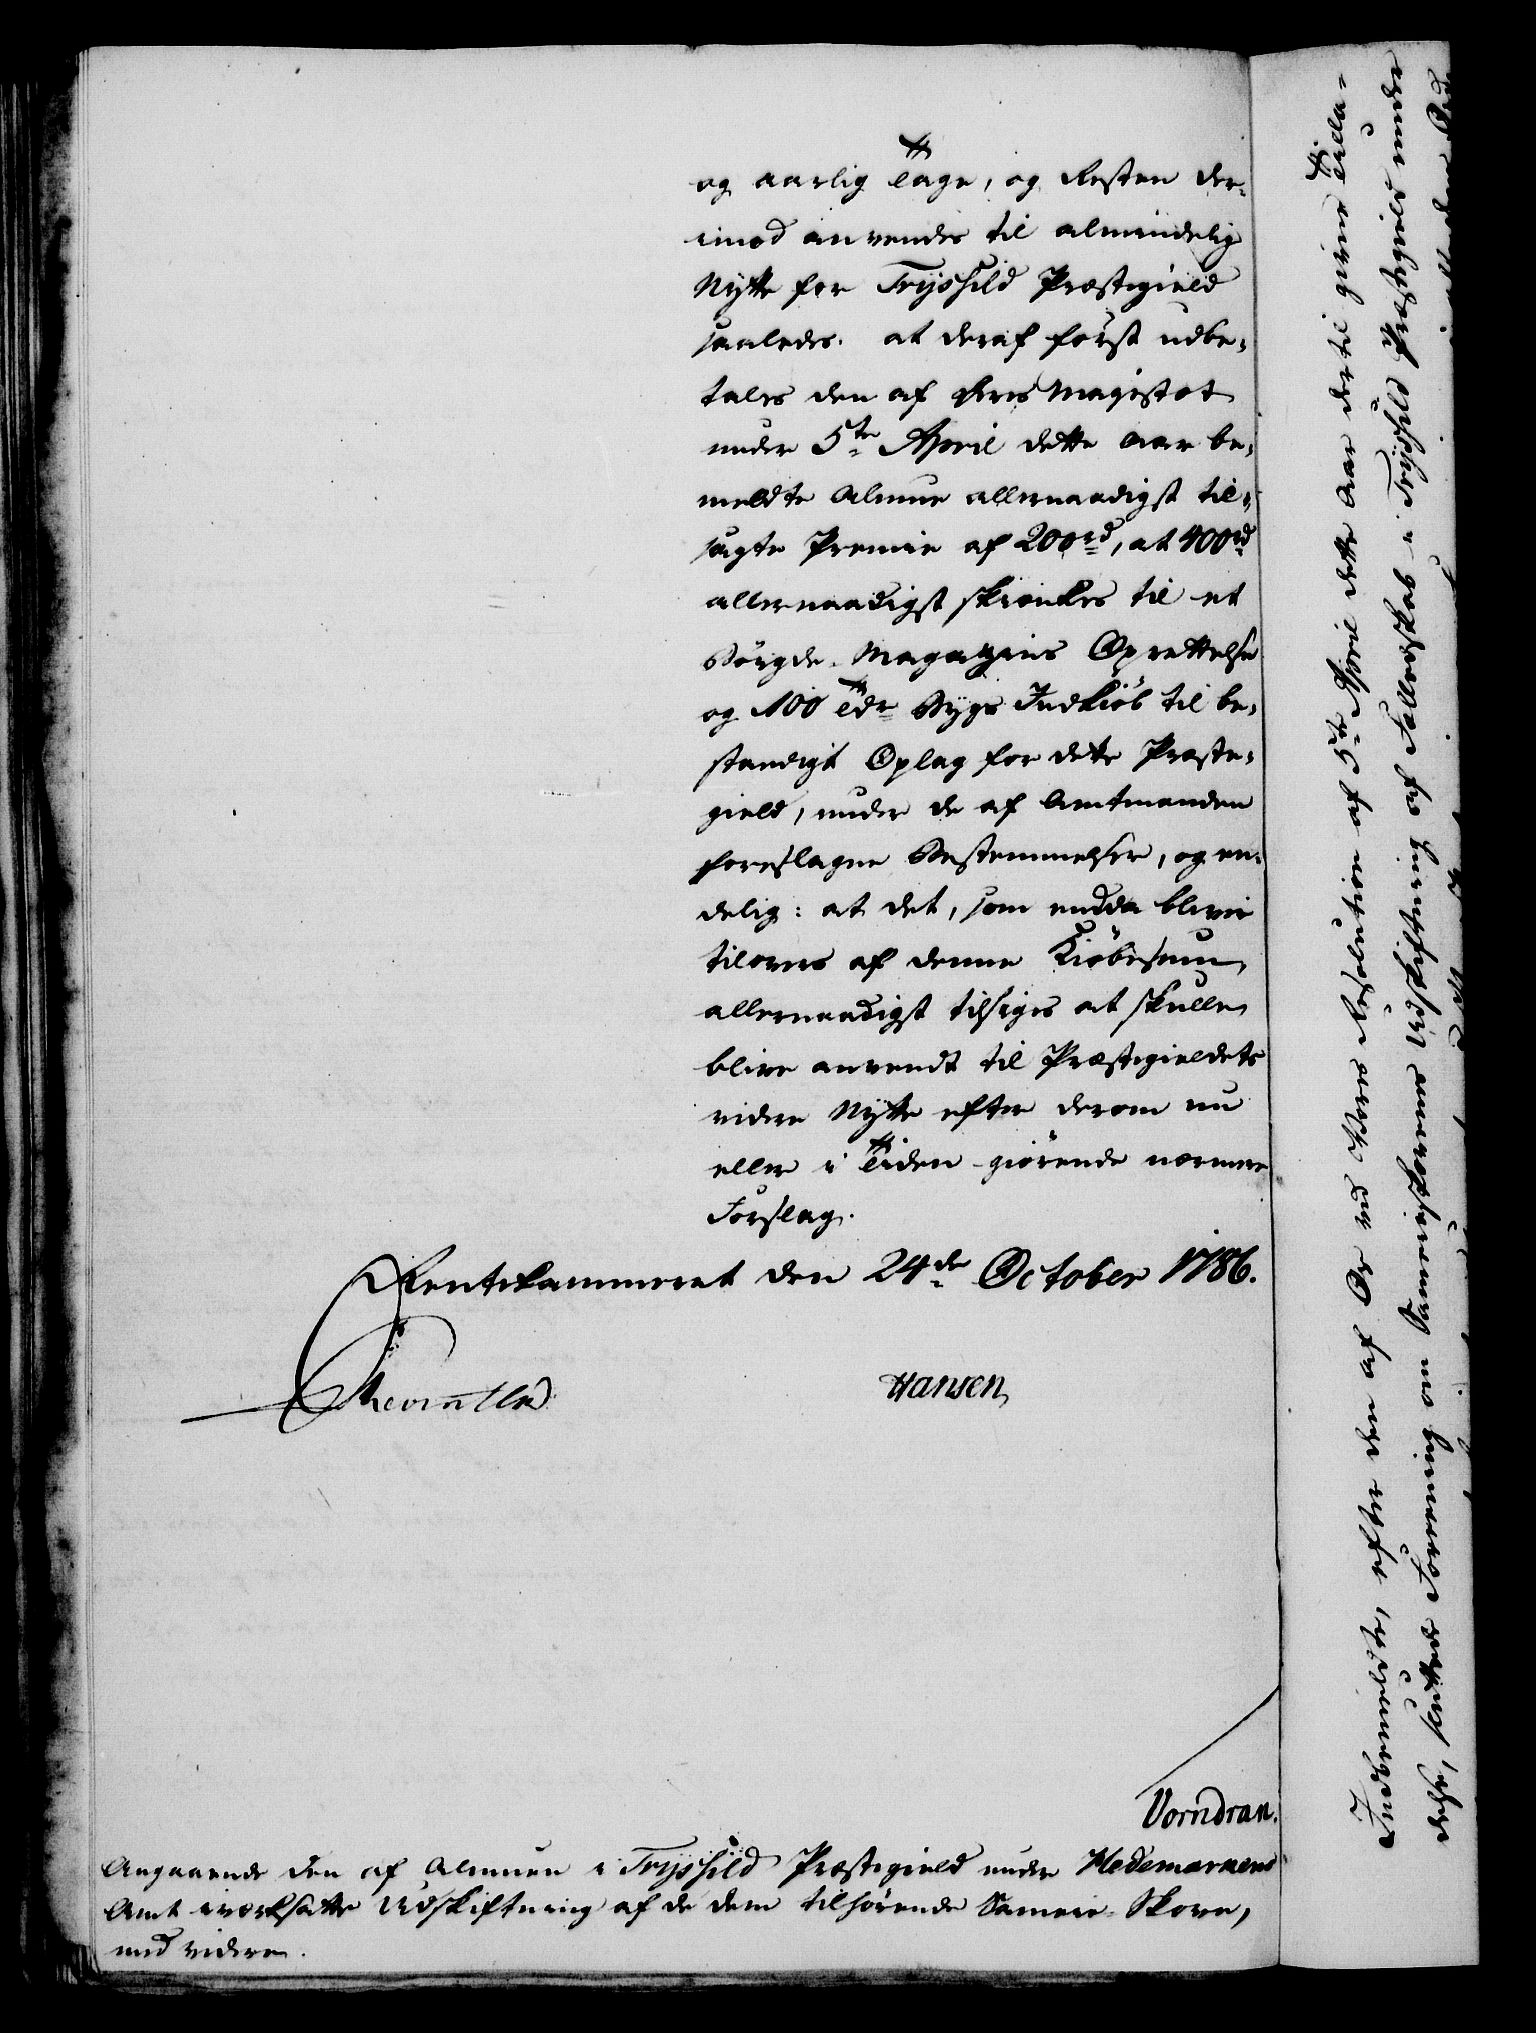 og aarlig Tage, og Resten der-
imod anvendes til almindelig
Nytte for Tryssild Præstegield
saaledes: at deraf først udbe-
tales den af Deres Majestæt
under 5te April dette Aar be-
meldte Almue allernaadigst til-
sagte Premie af 200rd, at 400rd
allernaadigst skiænkes til et
Bøygde-Magazins Oprettelse
og 100 Tdr Bygs Indkiøb til be-
standigt Oplag for dette Præste-
gield, under de af Amtmanden
foreslagne Bestemmelser, og en-
delig: at det, som endda bliver
tilovers af denne Kiøbesum
allernaadigst tilsiges at skulle
blive anvendt til Præstegieldets
videre Nytte efter derom nu
eller i Tiden giørende nærmere
Forslag.
Rentekammeret den 24de October 1786.
Hansen
Vorndran.
Angaaende den af Almuen i Tryssild Præstegield under Hedemarkens
Amt iværksatte Udskiftning af de dem tilhørende Sameie-Skove,
med videre.
Indbemeldte, efter den af Os ved Vores Resolution af 5te April dette Aar dertil givne Tilla-
delse, sluttede Forening om Sameieskovenes Udskiftning af Fælledskab i Tryssild Præstegield under